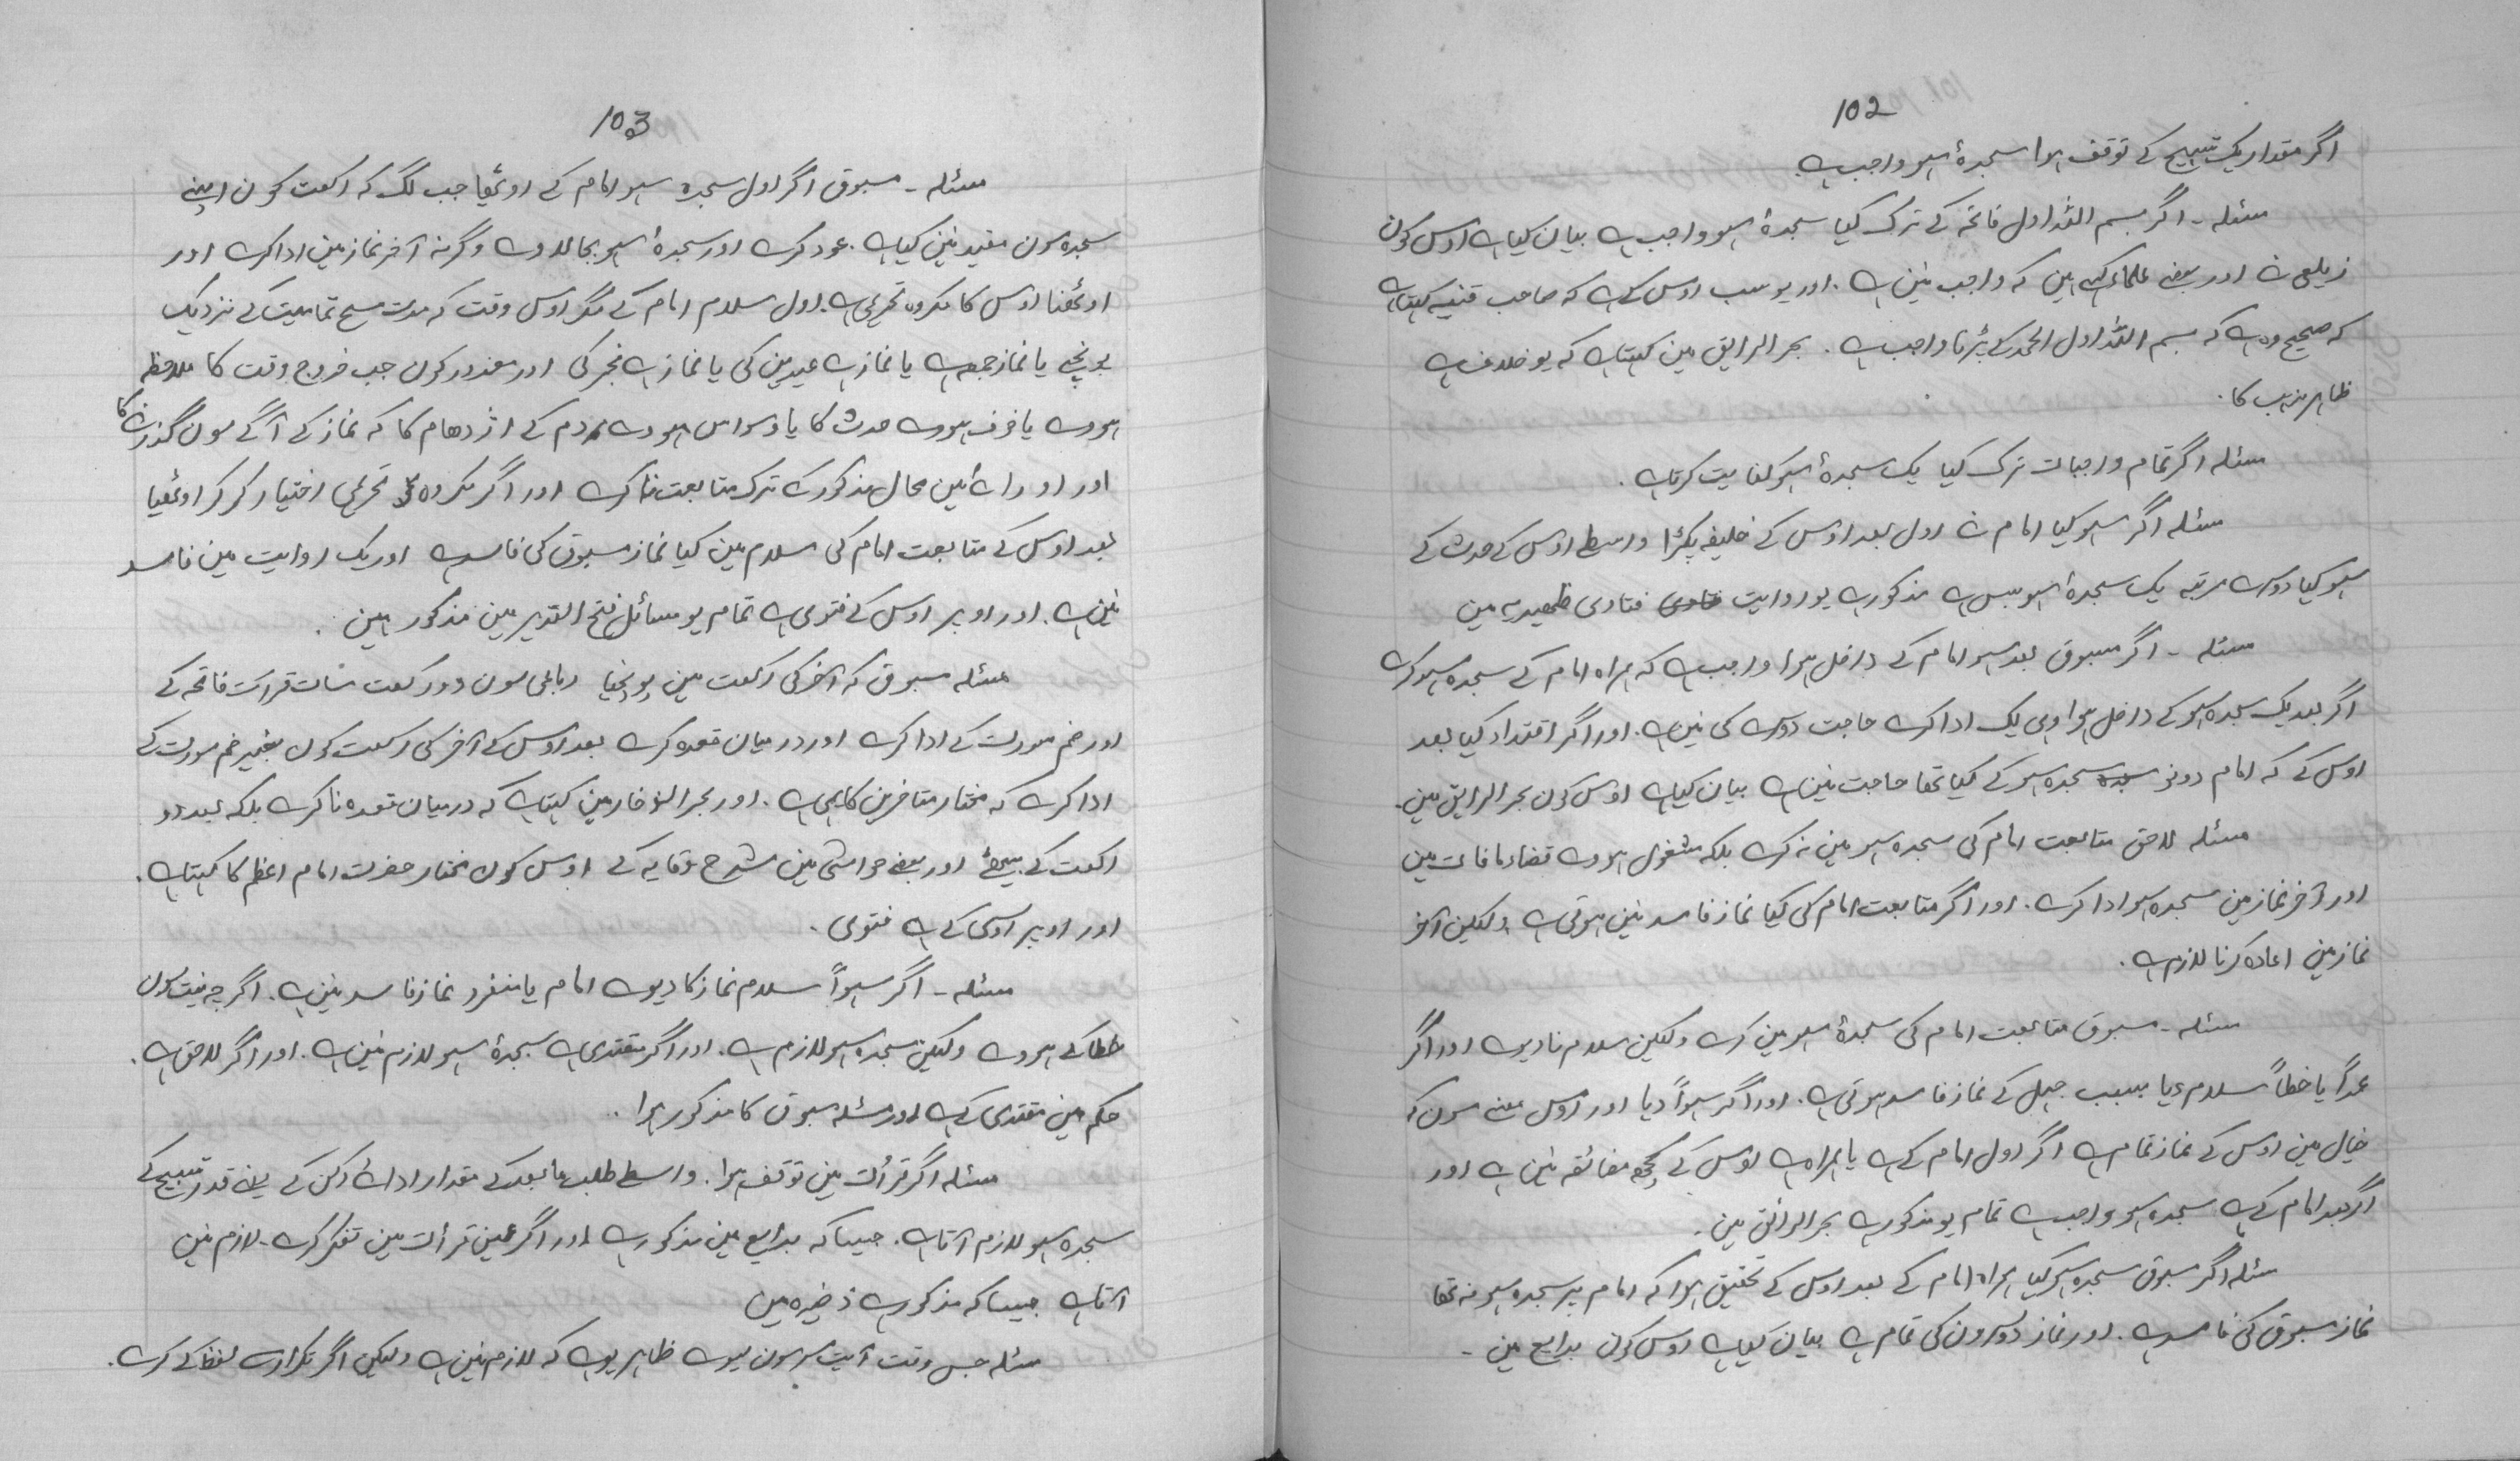 102
اگر مقدار یک تسبیح کے توقف ہوا سجدۂ سہو واجب ہے
مسئلہ ۔ اگر بسم اللہ اول فاتحہ کے ترک کیا سجدۂ سہو واجب ہے بیان کیا ہے اوس کون
زیلعی نے اور بعضے علماء کہے ہین کہ واجب نئین ہے ۔ اور یو سبب اوس کے ہے کہ صاحب قنیہ کہتا ہے
کہ صحیح وہ ہے کہ بسم اللہ اول الحمد کے پڑنا واجب ہے ۔ بحر الرایق مین کہتا ہے کہ یو خلاف ہے
ظاہر مذہب کا ۔
مسئلہ اگر تمام واجبات ترک کیا یک سجدۂ سہو کفایت کرتا ہے ۔
مسئلہ اگر سہو کیا امام نے اول بعد اوس کے خلیفہ پکڑا واسطے اوس کے حدث کے
سہو کیا دوسرے مرتبہ یک سجدۂ سہو بس ہے مذکور ہے یو روایت فتاوی ظہیریہ مین
مسئلہ ۔ اگر مسبوق بعد سہو امام کے داخل ہوا واجب ہے کہ ہمراہ امام کے سجدہ سہو کرے
اگر بعد یک سجدہ سہو کے داخل ہوا وہی یک ادا کرے حاجت دوسرے کی نین ہے ۔ اور اگر اقتداء کیا بعد
اوس کے کہ امام دونو سجدہ سہو کے کیا تھا حاجت نین ہے بیان کیا ہے اوس کون بحر الرایق مین ۔
مسئلہ لاحق متابعت امام کی سجدہ سہو مین نہ کرے بلکہ مشغول ہووے قضاء مافات مین
اور آخر نماز مین سجدہ سہو ادا کرے ۔ اور اگر متابعت امام کی کیا نماز فاسد نین ہوتی ہے ولکین آخر
نماز مین اعادہ کرنا لازم ہے ۔
مسئلہ ۔ مسبوق متابعت امام کی سجدۂ سہو مین کرے ولکین سلام نا دیوے اور اگر
عمداً یا خطاً سلام دیا بسبب جہل کے نماز فاسد ہوتی ہے ۔ اور اگر سہواً دیا اور اوس مین سون کہ
خیال مین اوس کے نماز تمام ہے اگر اول امام کے ہے یا ہمراہ ہے اوس کے کچھ مضائقہ نین ہے اور
اگر بعد امام کے ہے سجدہ سہو واجب ہے تمام یو مذکور ہے بحر الرائق مین ۔
مسئلہ اگر مسبوق سجدہ سہو کیا ہمراہ امام کے بعد اوس کے تحقیق ہوا کہ امام پر سجدہ سہو نہ تھا
نماز مسبوق کی فاسد ہے ۔ اور نماز دوسرون کی تمام ہے بیان کیا ہے اوس کون بدایع مین ۔
103
مسئلہ ۔ مسبوق اگر اول سجدہ سہو امام کے اوٹھیا جب لگ کہ رکعت کون اپنے
سجدہ سون مقید نین کیا ہے ۔ عود کرے اور سجدۂ سہو بجا لاوے وگرنہ آخر نماز مین ادا کرے اور
اوٹھنا اوس کا مکروہ تحریمی ہے اول سلام امام کے مگر اوس وقت کہ مدت مسح تمامیت کے نزدیک
پونچے یا نماز جمعہ ہے یا نماز ہے عیدین کی یا نماز ہے فجر کی اور معذور کون جب خروج وقت کا ملاحظہ
ہووے یا خوف ہووے حدث کا یا وسواس ہووے مردم کے اژدھام کا کہ نماز کے آگے سون گذرنے کا
اور اوراے ئین محال مذکور کے ترک متابعت نا کرے اور اگر مکروہ تحریمی اختیار کر کر اوٹھیا
بعد اوس کے متابعت امام کی سلام مین کیا نماز مسبوق کی فاسد ہے اور یک روایت مین فاسد
نین ہے ۔ اور اوپر اوس کے فتوی ہے تمام یو مسائل فتح القدیر مین مذکور ہین ۔
مسئلہ مسبوق کہ آخر کی رکعت مین پونچیا رباعی سون دو رکعت سات قرائت فاتحہ کے
اور ضم سورت کے ادا کرے اور درمیان قعدہ کرے بعد اوس کے آخر کی رکعت کون بغیر ضم سورت کے
ادا کرے کہ مختار متاخرین کا یہی ہے ۔ اور بحر الزخار مین کہتا ہے کہ درمیان قعدہ نا کرے بلکہ بعد دو
رکعت کے بیٹھے اور بعضے حواشی مین شرح وقایہ کے اوس کون مختار حضرت امام اعظم کا کہتا ہے ۔
اور اوپر اوسی کے ہے فتوی ۔
مسئلہ ۔ اگر سہواً سلام نماز کا دیوے امام یا منفرد نماز فاسد نین ہے ۔ اگرچہ نیت سون
خطا کے ہووے ولکین سجدہ سہو لازم ہے ۔ اور اگر مقتدی ہے سجدۂ سہو لازم نین ہے ۔ اور اگر لاحق ہے ۔
حکم مین مقتدی کے ہے اور مسئلہ مسبوق کا مذکور ہوا ۔
مسئلہ اگر قرأت مین توقف ہوا ۔ واسطے طلب مابعد کے مقدار اداے رکن کے یعنے قدر تسبیح کے
سجدہ سہو لازم آتا ہے ۔ جیسا کہ بدایع مین مذکور ہے اور اگر عین قرأت مین تفکر کرے ۔ لازم نین
آتا ہے جیسا کہ مذکور ہے ذخیرہ مین
مسئلہ جس وقت آیت سون لیوے ظاہر یو ہے کہ لازم نین ہے ولکین اگر تکرار لفظ کے کرے ۔